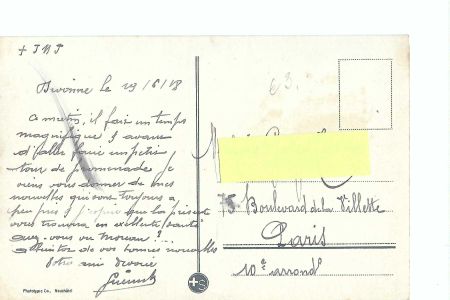 Divonne le 19/6/18
amitié, il fait un temps
magnifique & avant
d'aller faire un petit
tour de promenade je
viens vous donner de mes
nouvelles qui sont toujours à
peu près que la présente
vous trouvera en excellente santé
vous ou
de vos bonnes nouvelles
Votre ami dévoué
63.
75 Boulevard de la Villette
Paris
10e arrondt
Phototypie Co., Neuchâtel